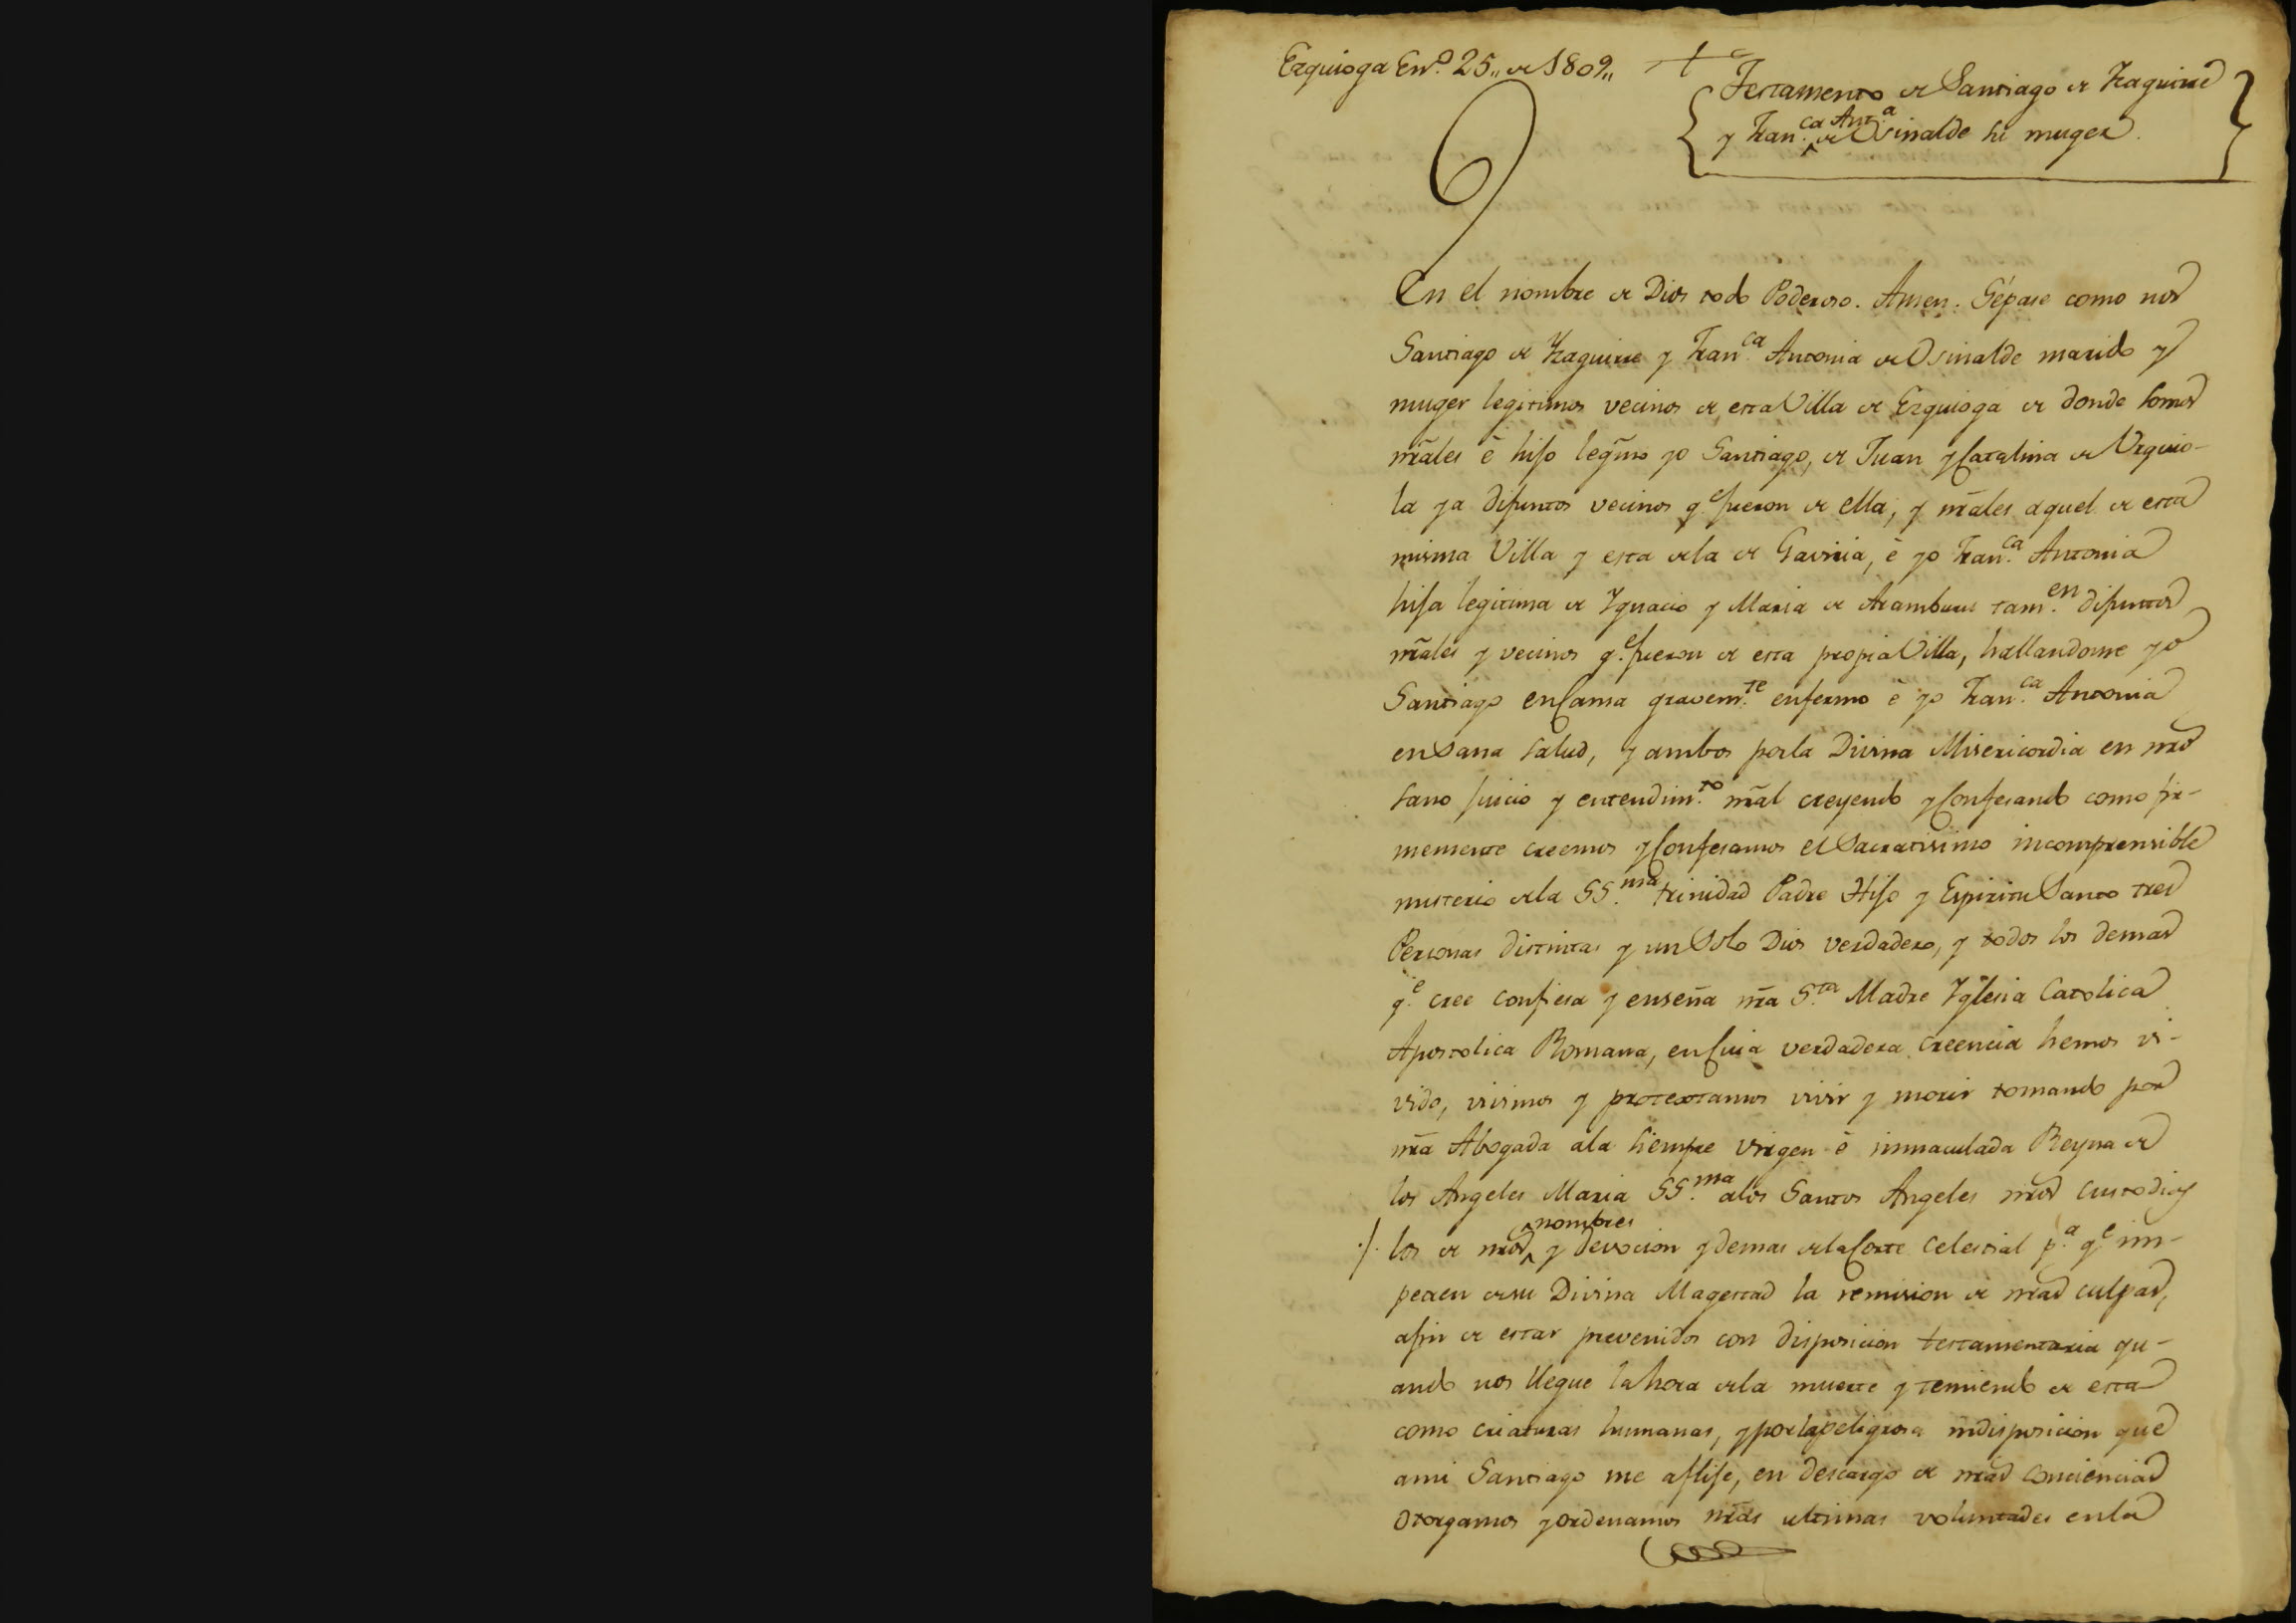 Ezquioga En.º 25,, de 1809,,
Testamento de Santiago de Yraguirre
y Fran.ca Ant.a de Osinalde su muger.
En el nombre de Dios todo Poderoso. Amen. Sépase como nos
Santiago de Yraguirre y Fran.ca Antonia de Osinalde marido y
muger legitimos vecinos de esta Villa de Ezquioga de donde somos
nrãles é hijo legm̃o yo Santiago, de Juan y Catalina de Urquio-
la ya difuntos vecinos q.e fueron de ella, y nrãles aquel de esta
misma Villa y esta dela de Gaviria, é yo Fran.ca Antonia
hija legitima de Ygnacio y Maria de Aramburu tam.en difuntos
nrãles y vecinos q.e fueron de esta propia Villa, hallandome yo
Santiago en Cama gravem.te enfermo é yo Fran.ca Antonia
en Sana salud, y ambos porla Divina Misericordia en nrõ
sano juicio y entendim.to nrãl creyendo y Confesando como fir-
memente creemos y Confesamos el Sacratisimo incomprensible
misterio dela SS.ma trinidad Padre Hijo y Espiritu Santo tres
Personas distintas y un Solo Dios verdadero, y todos los demas
q.e cree confiesa y enseña nrã S.ta Madre Yglesia Catolica
Apostolica Romana, en Cuia verdadera creencia hemos vi-
vido, vivimos y protextamos vivir y morir tomando por
nrã Abogada ala siempre virgen é inmaculada Reyna de
los Angeles Maria SS.ma alos Santos Angeles nrõs custodios
nombres
/. los de nrõs y devocion y demas dela Corte Celestial p.a q.e im-
petren desu Divina Magestad la remision de nrãs culpas,
afin de estar prevenidos con disposicion testamentaria qu-
ando nos llegue la hora dela muerte y temiendo de esta
como criaturas humanas, y por la peligrosa indisposicion que
ami Santiago me aflije, en descargo de nrãs conciencias
otorgamos y ordenamos nrãs ultimas voluntades enla